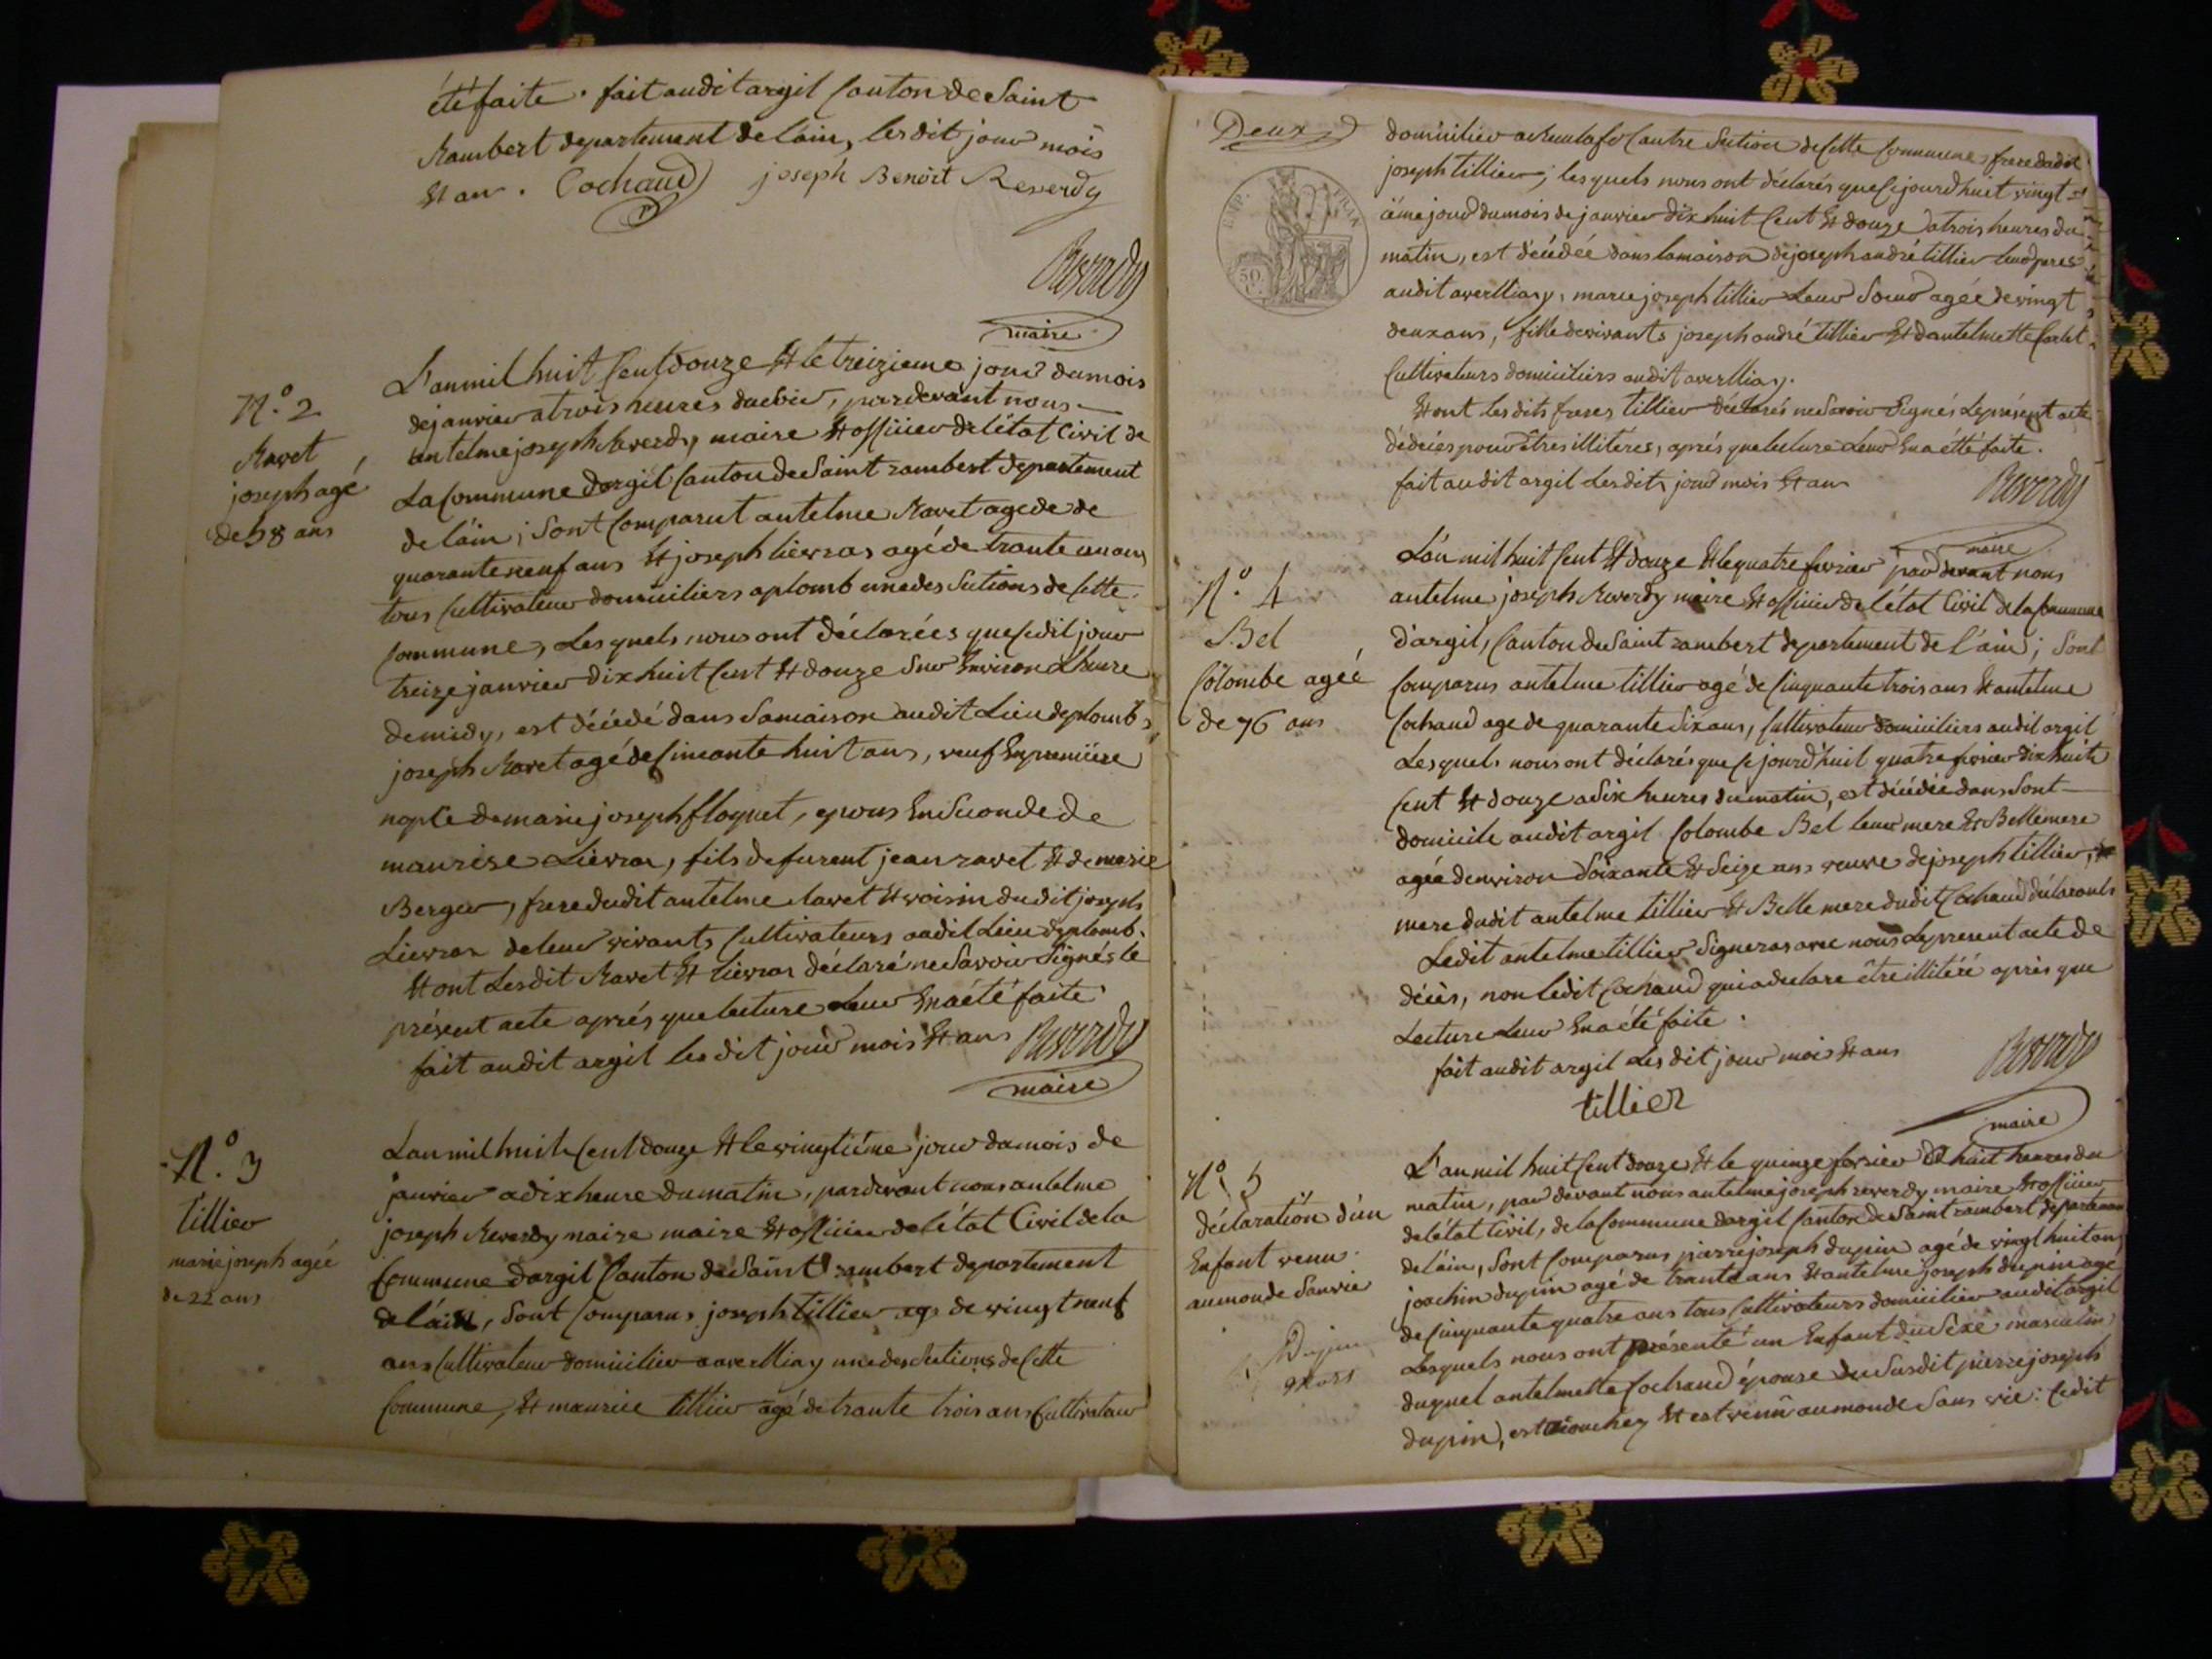 été faite. fait audit argil Canton de Saint
Rambert departement de l'ain, les dit jour mois
Et an. Cochaud joseph Benoit Reverdy
Reverdy
maire
N.° 2
Ravet
joseph agé
de 58 ans
L'an mil huit Cent douze Et le treizieme jour du mois
de janvier a trois heures du soir, pardevant nous
antelme joseph Reverdy, maire Et officier de l'état Civil de
La Commune dargil Canton de Saint rambert departement
de l'ain; Sont Comparut antelme Ravet age de de
quarante neuf ans Et joseph lievras agé de trante un ans
tous Cultivateur domiciliers a plomb une des Sections de Cette
Commune, Les quels nous ont déclarées que Cedit jour
treize janvier dix huit Cent Et douze Sur Environ L'heure
de midy, est décédé dans Sa maison audit Lieu de plomb,
joseph Ravet agé de Cincante huit ans, veuf En premiere
nopce de marie joseph floquet, epous En Seconde de
maurise Lievras, fils de furent jean ravet Et de marie
Berger, frere dudit antelme Ravet Et voisin dudit joseph
Lievras de leur vivants Cultivateurs audit Lieu de plomb.
Et ont Lesdit Ravet Et lievras déclaré ne Savoir Signés le
présent acte aprés que lecture Leur En a été faite.
fait audit argil les dit jour mois Et ans Reverdy
maire
N.° 3
Tillier
marie joseph agée
de 22 ans
L'an mil huit Cent douze Et le vingtiéme jour du mois de
janvier a dix heure du matin, pardevant nous antelme
joseph Reverdy maire maire Et officier de l'état Civil de la
Commune dargil Canton de Saint rambert departement
de l'ain, Sont Comparus joseph tillier age de vingt neuf
ans Cultivateur domicilier a averlliay une des Sections de Cette
Commune, Et maurice tillier agé de trante trois ans Cultivateur
Deux
EMP. FRAN
50
domicilier a autre Section de Cette Commune, frere dudit
joseph tillier; les quels nous ont déclarés que Cejourd huit vingt
iéme jour du mois de janvier dix huit Cent Et douze a trois heures du
matin, est décédée dans la maison de joseph andré tillier leur peres
audit averlliay, marie joseph tillier Leur Soeur agée de vingt
deux ans, fille de vivants joseph andré tillier Et dantelmette
Cultivateurs domiciliers audit averlliay.
Et ont Les dits freres tillier déclarés ne Savoir Signés Le présent acte
de décés pour être illiteres, aprés que lecture Leur En a étté faite.
fait audit argil Lesdits jour mois Et ans Reverdy
maire
N.° 4
Bel
Colombe agée
de 76 ans
L'an mil huit Cent Et douze Et le quatre fevrier par devant nous
antelme joseph Reverdy maire Et officier de l'état Civil de la Commune
d'argil, Canton de Saint rambert departement de l'ain; Sont
Comparus antelme tillier agé de Cinquante trois ans Et antelme
Cochaud age de quarante Six ans, Cultivateur domiciliers audit argil
Les quels nous ont déclarés que Cejourd'huit quatre fevrier dix huit
Cent Et douze a Six heures du matin, est décédée dans Sont
domicile audit argil Colombe Bel leur mere Et Belle mere
agée denviron Soixante Et Seize ans veuve de joseph tillier,
mere dudit antelme tillier Et Belle mere dudit Cochaud déclarants
Ledit antelme tillier Signeras avec nous Le present acte de
décès, non ledit Cochaud qui a declare être illitéré après que
Lecture Leur En a été faite.
fait audit argil Les dit jour mois Et ans Reverdy
tillier
maire
N.° 5
déclaration d'un
Enfant venu
au monde Sans vie
Dupin
L'an mil huit Cent douze Et le quinze fevrier a huit heures du
matin, par devant nous antelme joseph reverdy maire Et officier
de l'état Civil, de la Commune dargil Canton de Saint rambert departement
de l'ain, Sont Comparus pierre joseph dupin agé de vingt huit ans
joachin dupin agé de trante ans Et antelme joseph dupin agé
de Cinquante quatre ans tous Cultivateurs domicilier audit argil
Lesquels nous ont présenté un Enfant du Sexe masculin
duquel antelmette Cochaud épouse du Susdit pierre joseph
dupin, est acouchez Et est venu au monde Sans vie: Cedit